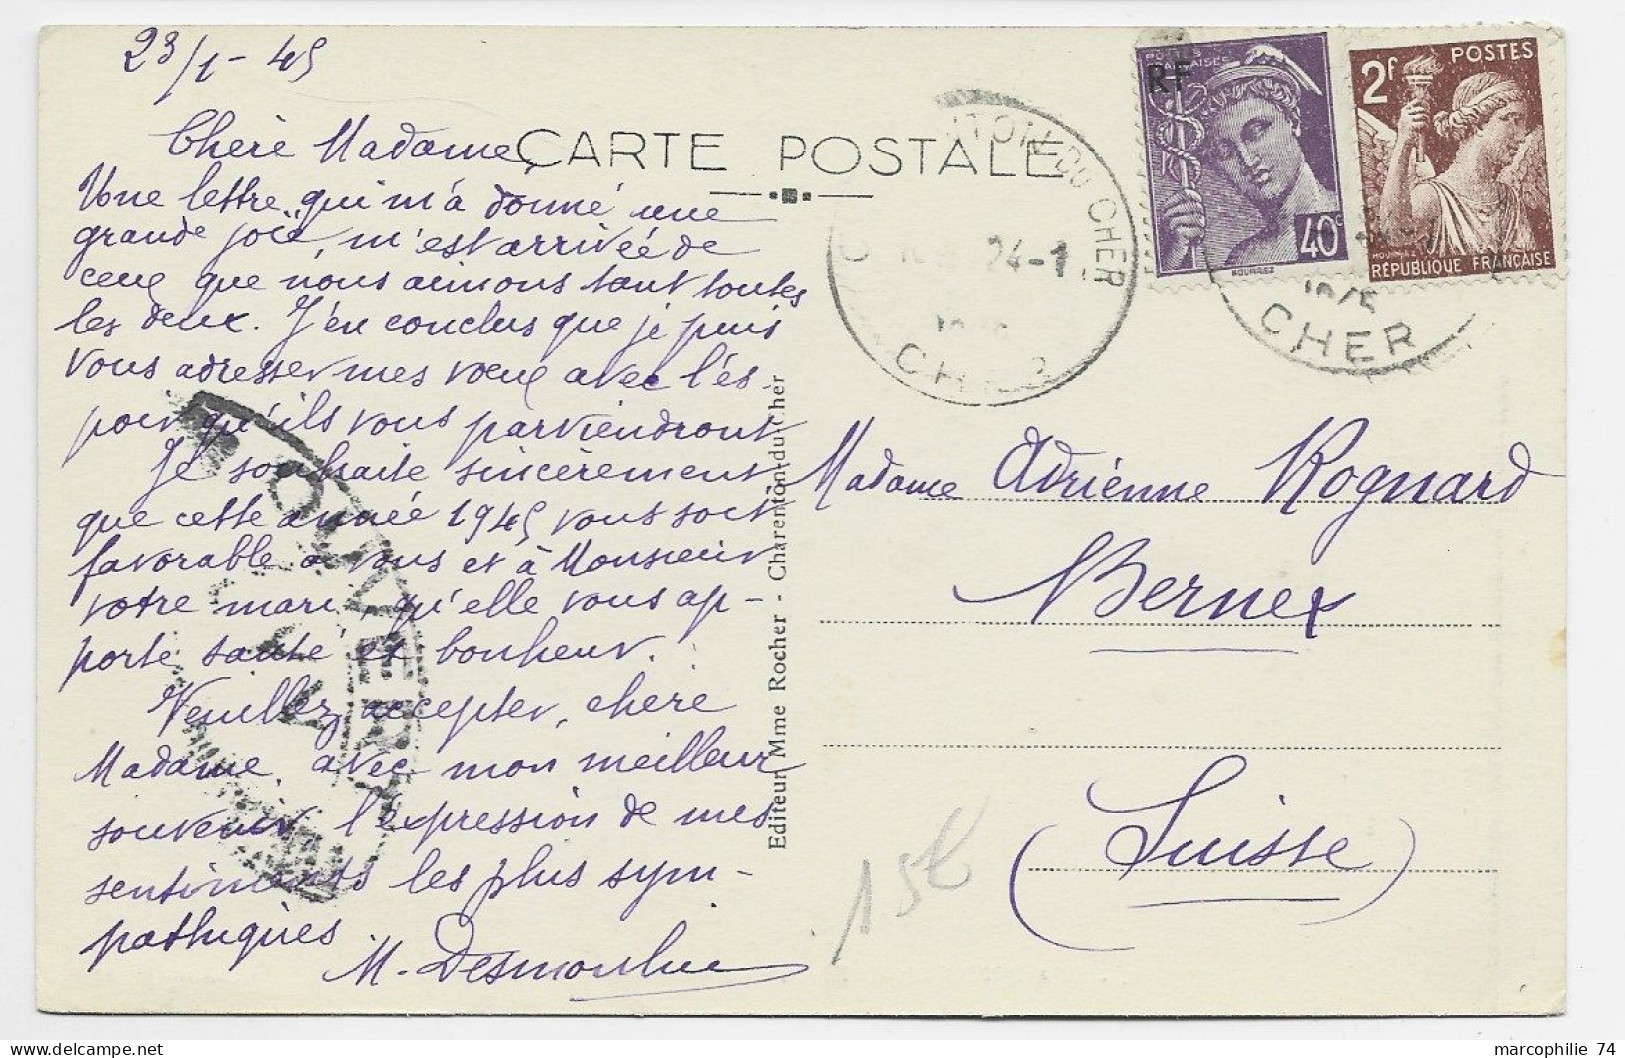 23/1 - 45
Chère Madame,
Une lettre, qui m'a donné une
grande joie, m'est arrivée de
ceux que nous aimons tant toutes
les deux. J'en conclus que je puis
vous adresser mes vœux avec l'es-
poir qu'ils vous parviendront
Je souhaite sincèrement
que cette année 1945 vous soit
favorable à vous et à Monsieur
votre mari, qu'elle vous ap-
porte santé et bonheur.
Veuillez accepter, chère
Madame, avec mon meilleur
souvenir, l'expression de mes
sentiments les plus sym-
pathiques
M. Desmoulin
CARTE POSTALE
Editeur Mme Rocher - Charenton-du-Cher
OUVERT
TON-DU-CHER
24-1
CHER
RF
POSTES
FRANÇAISES
40c
HOURRIEZ
2F
POSTES
HOURRIEZ
RÉPUBLIQUE FRANÇAISE
CHER
Madame Adrienne Rognard
Bernex
(Suisse)
15€
marcophilie 74